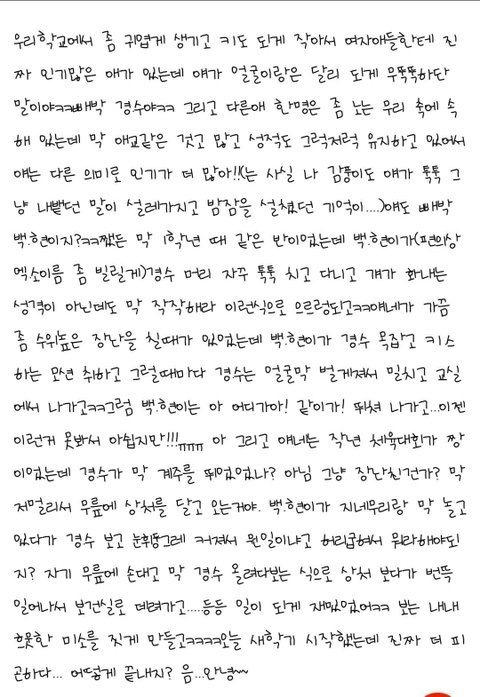 우리학교에서 좀 귀엽게 생기고 키도 되게 작아서 여자애들한테 진
짜 인기많은 애가 있는데 얘가 얼굴이랑은 달리 되게 무뚝뚝하단
말이야ㅋㅋ빼박 경수야ㅋㅋ 그리고 다른애 한명은 좀 노는 무리 속에 속
해 있는데 막 애교같은 것고 많고 성적도 그럭저럭 유지하고 있어서
얘는 다른 의미로 인기가 더 많아!!(는 사실 나 감풍이도 얘가 툭툭 그
냥 내뱉던 말이 설레가지고 밤잠을 설쳤던 기억이....)얘도 빼박
백.현이지?ㅋㅋ쨌든 막 1학년 때 같은 반이었는데 백.현이가(편의상
엑소이름 좀 빌릴게)경수 머리 자꾸 툭툭 치고 다니고 걔가 화내는
성격이 아닌데도 막 작작해라 이런식으로 으르렁되고ㅋㅋ얘네가 가끔
좀 수위높은 장난을 칠때가 있었는데 백.현이가 경수 목잡고 키스
하는 모션 취하고 그럴때마다 경수는 얼굴막 벌게져서 밀치고 교실
에서 나가고ㅋㅋ그럼 백.현이는 아 어디가아! 같이가! 뛰쳐 나가고...이젠
이런거 못봐서 아쉽지만!!!ㅠㅠㅠ 아 그리고 얘네는 작년 체육대회가 짱
이었는데 경수가 막 계주를 뛰었었나? 아님 그냥 장난친건가? 막
저멀리서 무릎에 상처를 달고 오는거야. 백.현이가 지네무리랑 막 놀고
있다가 경수 보고 눈휘둥그레 커져서 왼일이냐고 허리굽혀서 뭐라해야되
지? 자기 무릎에 손대고 막 경수 올려다보는 식으로 상처 보다가 번뜩
일어나서 보건실로 데려가고....등등 일이 되게 재밌었어ㅋㅋ 보는 내내
흐뭇한 미소를 짓게 만들고ㅋㅋㅋㅋ오늘 새학기 시작했는데 진짜 더 피
곤하다... 어떻게 끝내지? 음...안녕~~